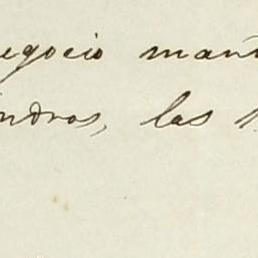 negocio man
indros, las